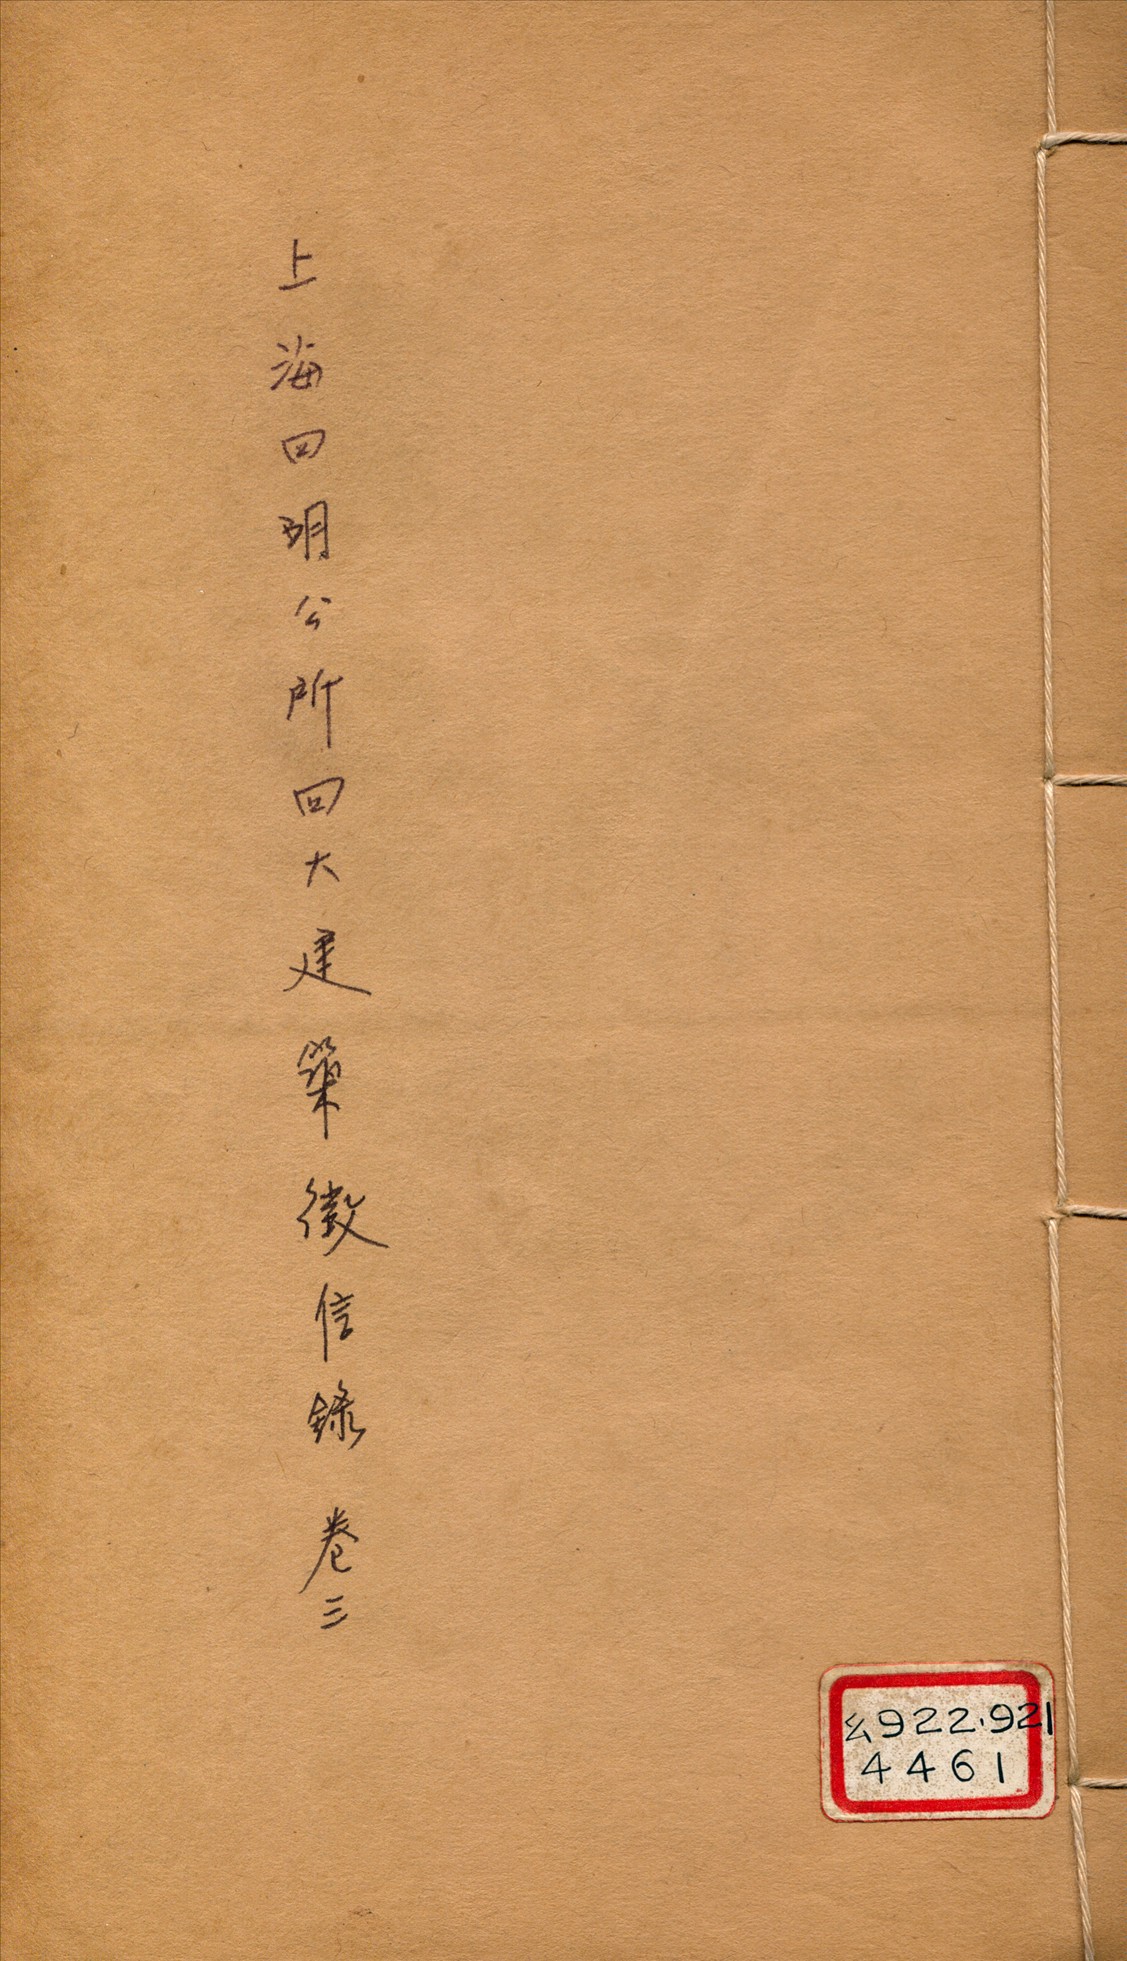 上海四明公所四大建築徵信錄 卷三
922.921
4461